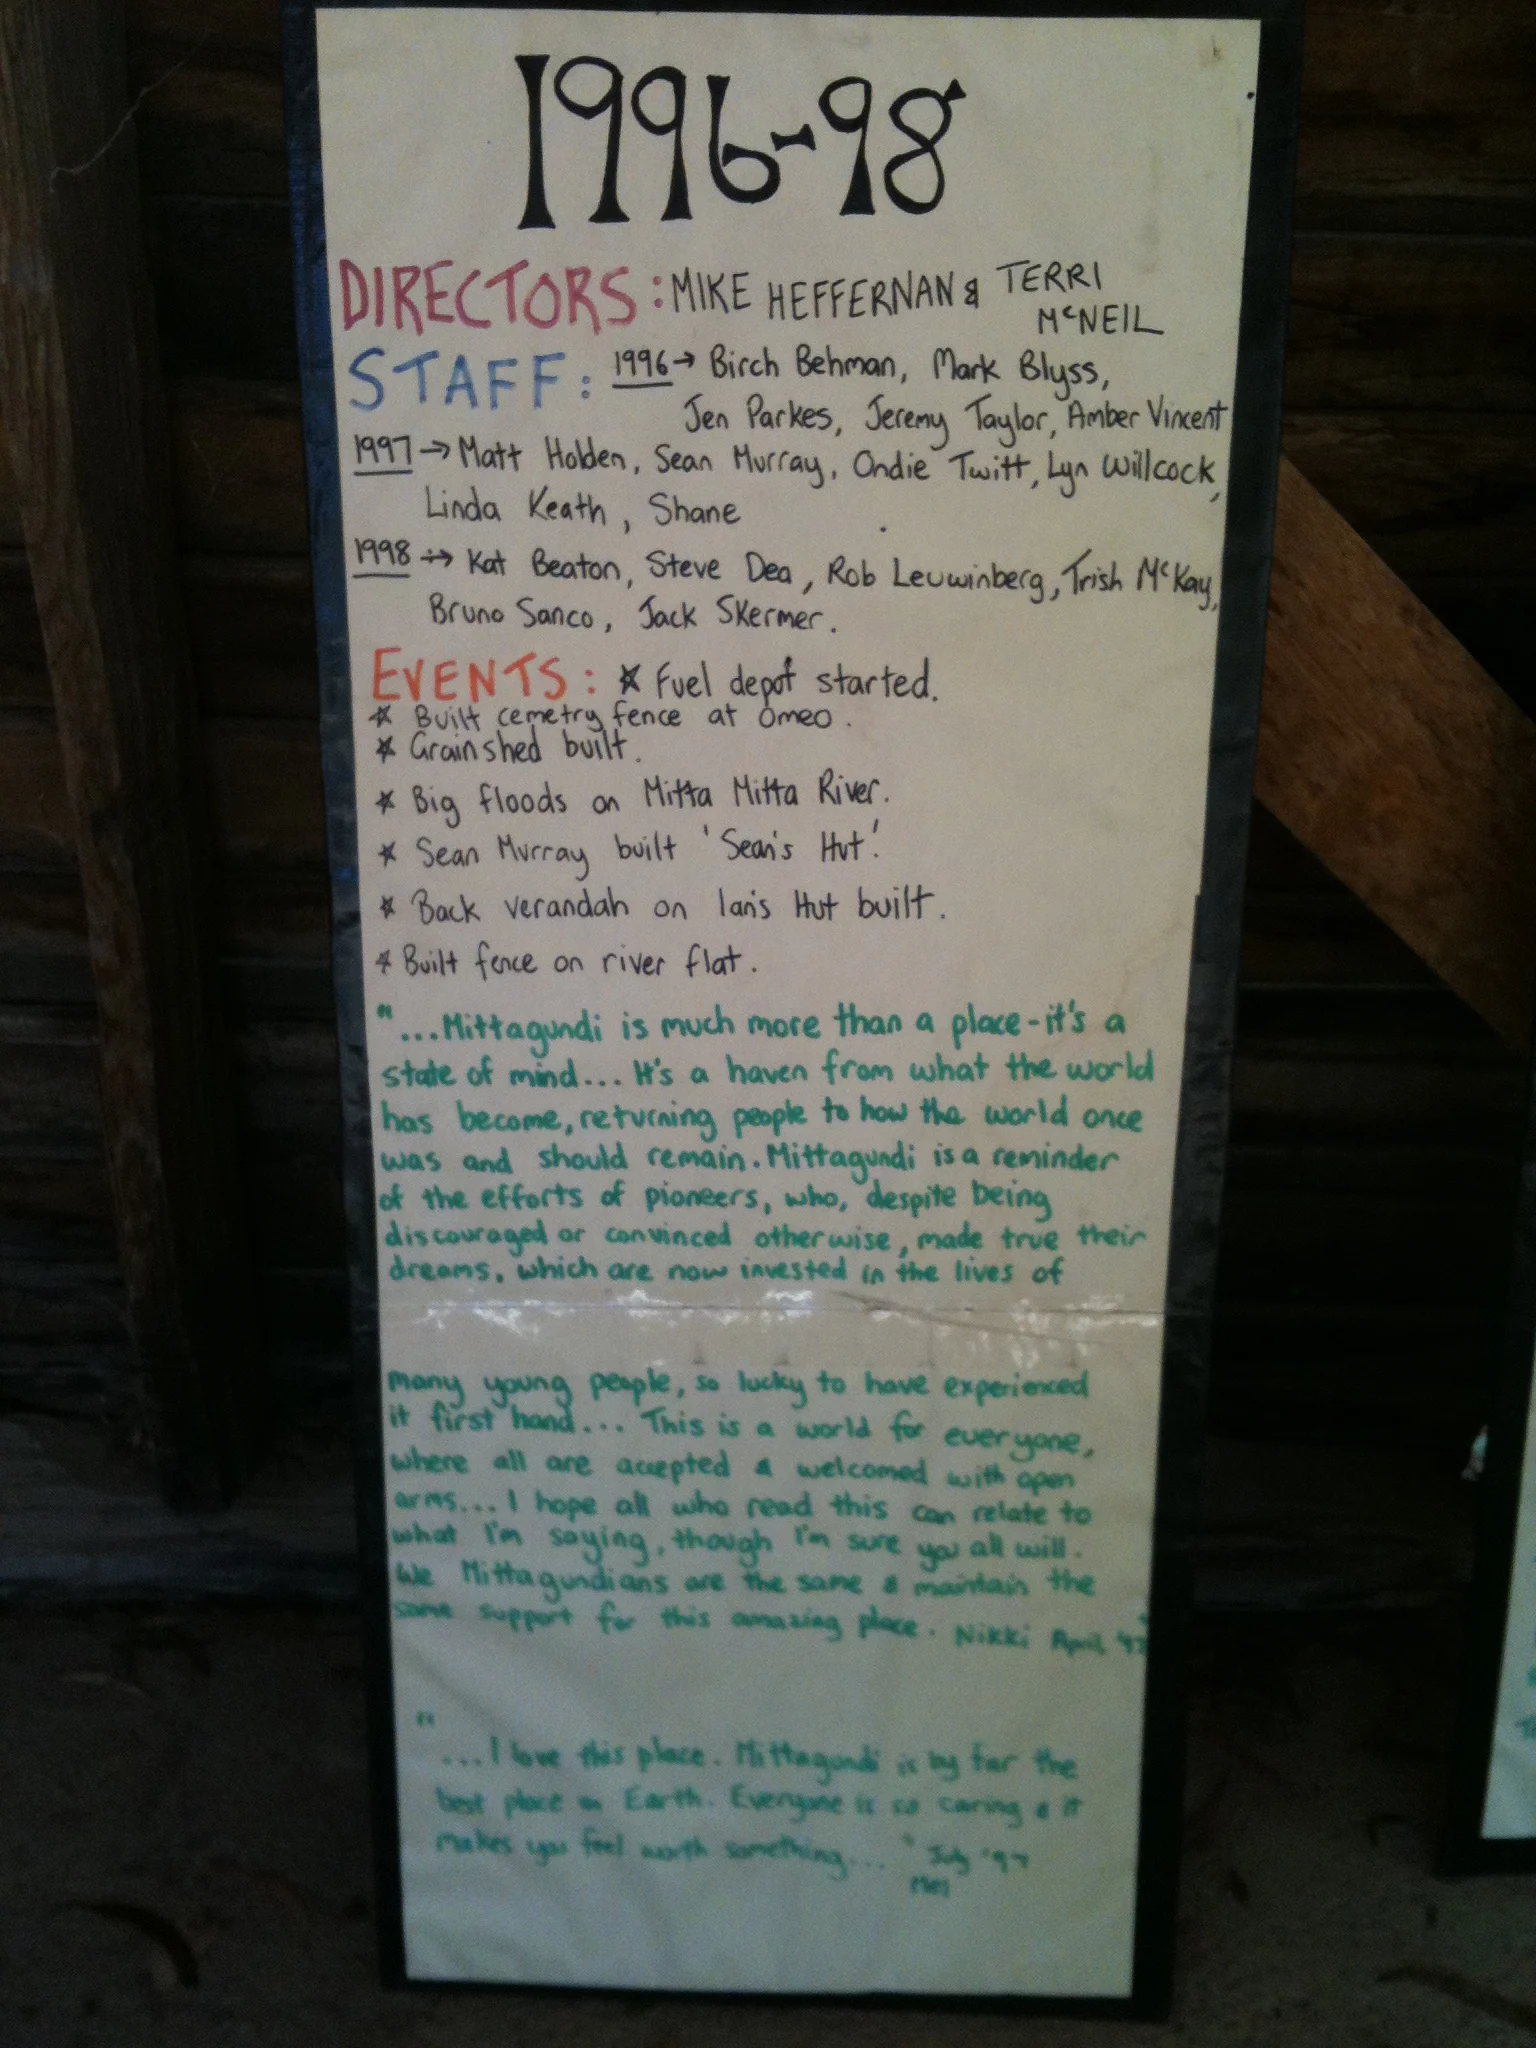 1996-98
DIRECTORS: MIKE HEFFERNAN & TERRI
McNEIL
STAFF: 1996→ Birch Behman, Mark Blyss,
Jen Parkes, Jeremy Taylor, Amber Vincent
1997→ Matt Holden, Sean Murray, Ondie Twitt, Lyn Willcock,
Linda Keath, Shane
1998→ Kat Beaton, Steve Dea, Rob Leuwinberg, Trish McKay,
Bruno Sanco, Jack Skermer.
EVENTS: * Fuel depot started.
* Built cemetry fence at Omeo.
* Grainshed built.
* Big floods on Mitta Mitta River.
* Sean Murray built 'Sean's Hut'.
* Back verandah on Ian's Hut built.
* Built fence on river flat.
"...Mittagundi is much more than a place - it's a
state of mind... It's a haven from what the world
has become, returning people to how the world once
was and should remain. Mittagundi is a reminder
of the efforts of pioneers, who, despite being
discouraged or convinced otherwise, made true their
dreams, which are now invested in the lives of
many young people, so lucky to have experienced
it first hand... This is a world for everyone,
where all are accepted & welcomed with open
arms... I hope all who read this can relate to
what I'm saying, though I'm sure you all will.
We Mittagundians are the same & maintain the
same support for this amazing place. Nikki April '97"
"
...I love this place. Mittagundi is by far the
best place on Earth. Everyone is so caring & it
makes you feel worth something..." July '97
Mel